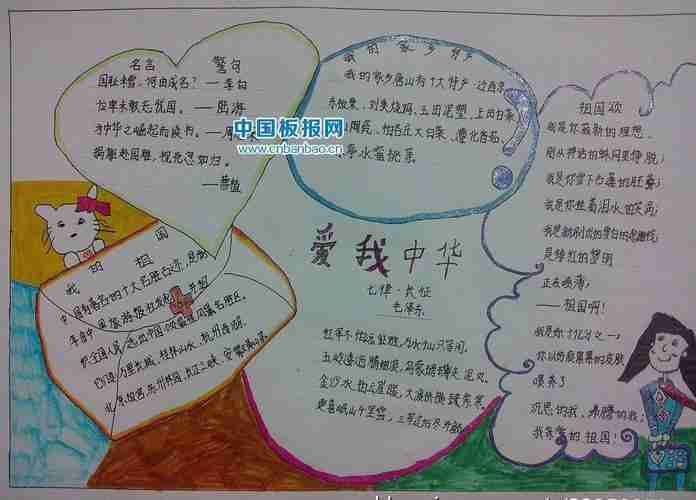 名言 警句
国耻未雪,何由成名?——李白
位卑未敢忘忧国。——陆游
为中华之崛起而读书。——周
捐躯赴国难,视死忽如归。
——曹植
中国板报网
www.cnbanbao.cn
我的家乡特产
我的家乡唐山有十大特产:迁西京
东板栗、刘美烧鸡、玉田泥塑、上岗白菜
陶瓷、大白菜、遵化香菇、
水蜜桃条
祖国啊
我是你簇新的理想,
刚从神话的蛛网里挣脱;
我是你雪下古莲的胚芽;
我是你挂着泪水的笑涡;
我是新刷出的雪白的起跑线;
是绯红的黎明
正在喷薄;
——祖国啊!
我是你十亿分之一,
你以伤痕累累的乳房
喂养了
沉思的我、沸腾的我;
我亲爱的祖国!
爱我中华
七律·长征
毛泽东
红军不怕远征难,万水千山只等闲。
五岭逶迤腾细浪,乌蒙磅礴走泥丸。
金沙水拍云崖暖,大渡桥横铁索寒。
更喜岷山千里雪,三军过后尽开颜
我的祖国
中国有著名的十大名胜古迹,
年由中国旅游报社发起并组
织全国人民选出中国风景名胜区。
它们是万里长城、桂林山水、杭州西湖、
北京故宫、苏州园林、长江三峡、安徽黄山